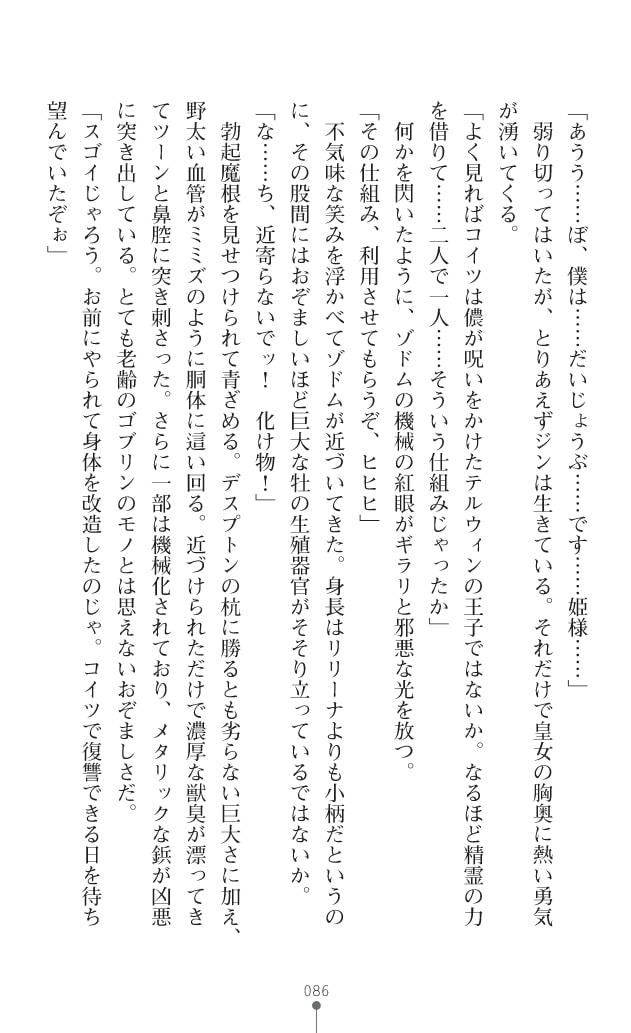 「あうう……ぼ、僕は……だいじょうぶ……です……姫様……」
　弱り切ってはいたが、とりあえずジンは生きている。それだけで皇女の胸奥に熱い勇気
が湧いてくる。
「よく見ればコイツは儂が呪いをかけたテルウィンの王子ではないか。なるほど精霊の力
を借りて……二人で一人……そういう仕組みじゃったか」
　何かを閃いたように、ゾドムの機械の紅眼がギラリと邪悪な光を放つ。
「その仕組み、利用させてもらうぞ、ヒヒヒ」
　不気味な笑みを浮かべてゾドムが近づいてきた。身長はリリーナよりも小柄だというの
に、その股間にはおぞましいほど巨大な牡の生殖器官がそそり立っているではないか。
「な……ち、近寄らないでッ！　化け物！」
　勃起魔根を見せつけられて青ざめる。デスプトンの杭に勝るとも劣らない巨大さに加え、
野太い血管がミミズのように胴体に這い回る。近づけられただけで濃厚な獣臭が漂ってき
てツーンと鼻腔に突き刺さった。さらに一部は機械化されており、メタリックな鋲が凶悪
に突き出している。とても老齢のゴブリンのモノとは思えないおぞましさだ。
「スゴイじゃろう。お前にやられて身体を改造したのじゃ。コイツで復讐できる日を待ち
望んでいたぞぉ」
086